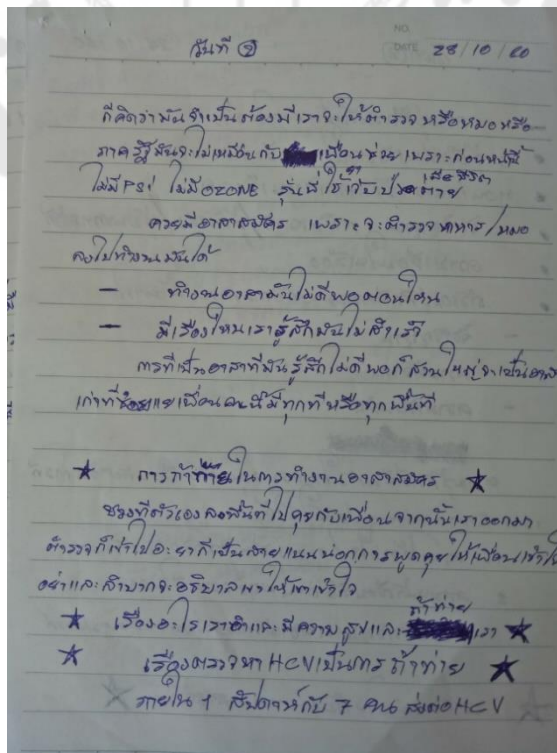 วันที่ ②
NO.
DATE 28/10/60
ก็คิดว่ามันจำเป็นต้องมีเราจะให้ตำรวจ หรือหมอหรือ
ภาครัฐมันจะไม่เหมือนกับ เพื่อนช่วย เพราะก่อนหน้านี้
ไม่มี PSI ไม่มี OZONE รุ่นพี่ใช้ เจ็บป่วย เสียชีวิต
ควรมีอาสาสมัคร เพราะจะตำรวจ ทหาร / หมอ
ลงไปทำงานมันได้
— ทำงานอาสามันไม่ดีพอตอนไหน
— มีเรื่องไหนเรารู้สึกมันไม่สำเร็จ
การที่เป็นอาสาที่มันรู้สึกไม่ดีพอก็ส่วนใหญ่จะเป็น
เก่าที่ เพื่อน มีทุกที่หรือทุกพื้นที่
★ การท้าทายในการทำงานอาสาสมัคร ★
ช่วงที่ตัวเองลงพื้นที่ไปคุยกับเพื่อนจากนั้นเราออกมา
ตำรวจก็เข้าไป การพูดคุยให้เพื่อนเข้าใจ
และลำบากจะอธิบาย ให้เขาเข้าใจ
ท้าทาย
★ เรื่องอะไรเราทำและมีความสุขและ เรา ★
★ เรื่องตรวจหา HCV เป็นการท้าทาย ★
ภายใน 1 สัปดาห์กับ 7 คน ส่งต่อ HCV